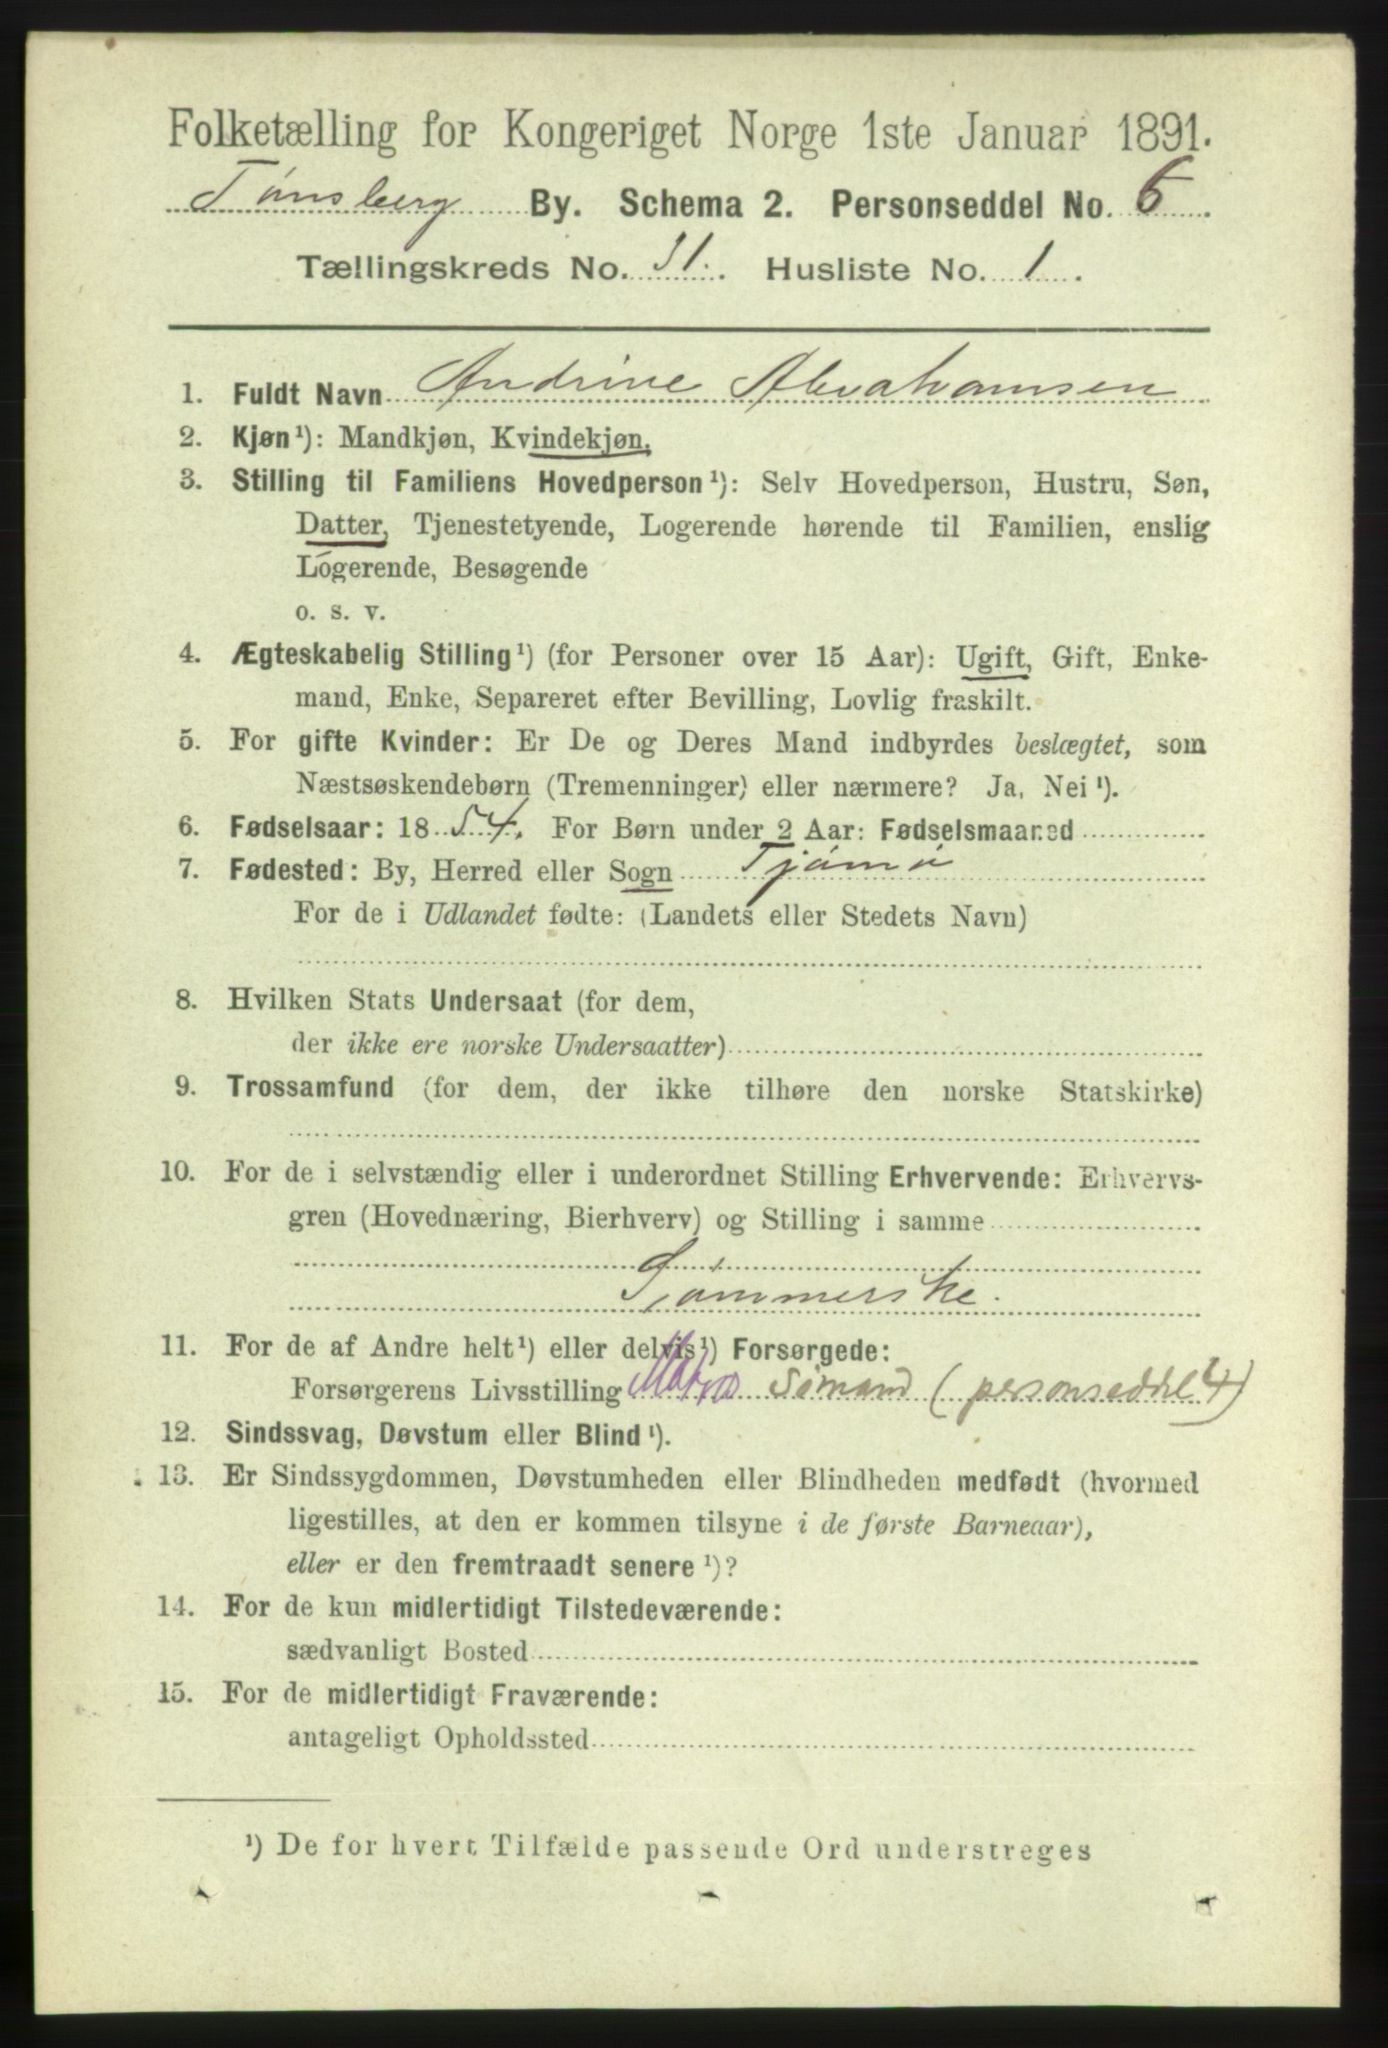 Folketælling for Kongeriget Norge 1ste Januar 1891.
Tønsberg By. Schema 2. Personseddel No. 6
Tællingskreds No. 31. Husliste No. 1.
1. Fuldt Navn Andrine Abrahamsen
2. Kjøn¹): Mandkjøn, Kvindekjøn.
3. Stilling til Familiens Hovedperson¹): Selv Hovedperson, Hustru, Søn,
Datter, Tjenestetyende, Logerende hørende til Familien, enslig
Logerende, Besøgende
o. s. v.
4. Ægteskabelig Stilling¹) (for Personer over 15 Aar): Ugift, Gift, Enke-
mand, Enke, Separeret efter Bevilling, Lovlig fraskilt.
5. For gifte Kvinder: Er De og Deres Mand indbyrdes beslægtet, som
Næstsøskendebørn (Tremenninger) eller nærmere? Ja, Nei¹).
6. Fødselsaar: 1854. For Børn under 2 Aar: Fødselsmaaned
7. Fødested: By, Herred eller Sogn Tjømø
For de i Udlandet fødte: (Landets eller Stedets Navn)
8. Hvilken Stats Undersaat (for dem,
der ikke ere norske Undersaatter)
9. Trossamfund (for dem, der ikke tilhøre den norske Statskirke)
10. For de i selvstændig eller i underordnet Stilling Erhvervende: Erhvervs-
gren (Hovednæring, Bierhverv) og Stilling i samme
Sømmerske.
11. For de af Andre helt¹) eller delvis¹) Forsørgede:
Forsørgerens Livsstilling Sømand (personseddel 4)
12. Sindssvag, Døvstum eller Blind¹).
13. Er Sindssygdommen, Døvstumheden eller Blindheden medfødt (hvormed
ligestilles, at den er kommen tilsyne i de første Barneaar),
eller er den fremtraadt senere¹)?
14. For de kun midlertidigt Tilstedeværende:
sædvanligt Bosted
15. For de midlertidigt Fraværende:
antageligt Opholdssted
¹) De for hvert Tilfælde passende Ord understreges